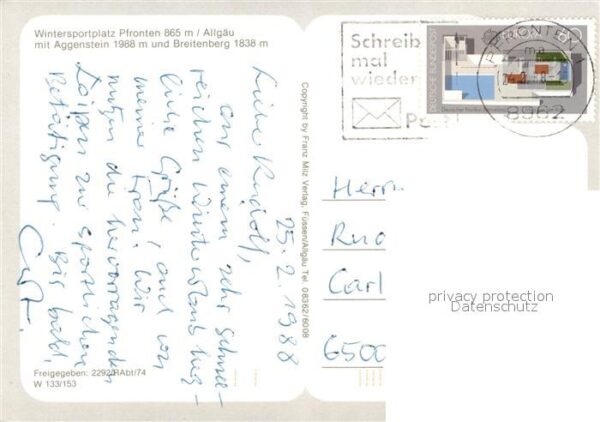 Wintersportplatz Pfronten 865 m / Allgäu
mit Aggenstein 1988 m und Breitenberg 1838 m
25.2.1988
Liebe Rudolf,
aus einem sehr schnee-
reichen Winterurlaub herz-
liche Grüße, auch von
meiner Frau. Wir
nutzen die hervorragenden
Loipen zu sportlichen
Betätigung. Bis bald,
Freigegeben: 2292/RAbt/74
W 133/153
Copyright by Franz Milz Verlag, Füssen/Allgäu Tel. 08362/6008
Schreib
mal
wieder
Post
PFRONTEN 1
8962
80
DEUTSCHE BUNDESPOST
Herrn
Rud
Carl
6500
privacy protection
Datenschutz